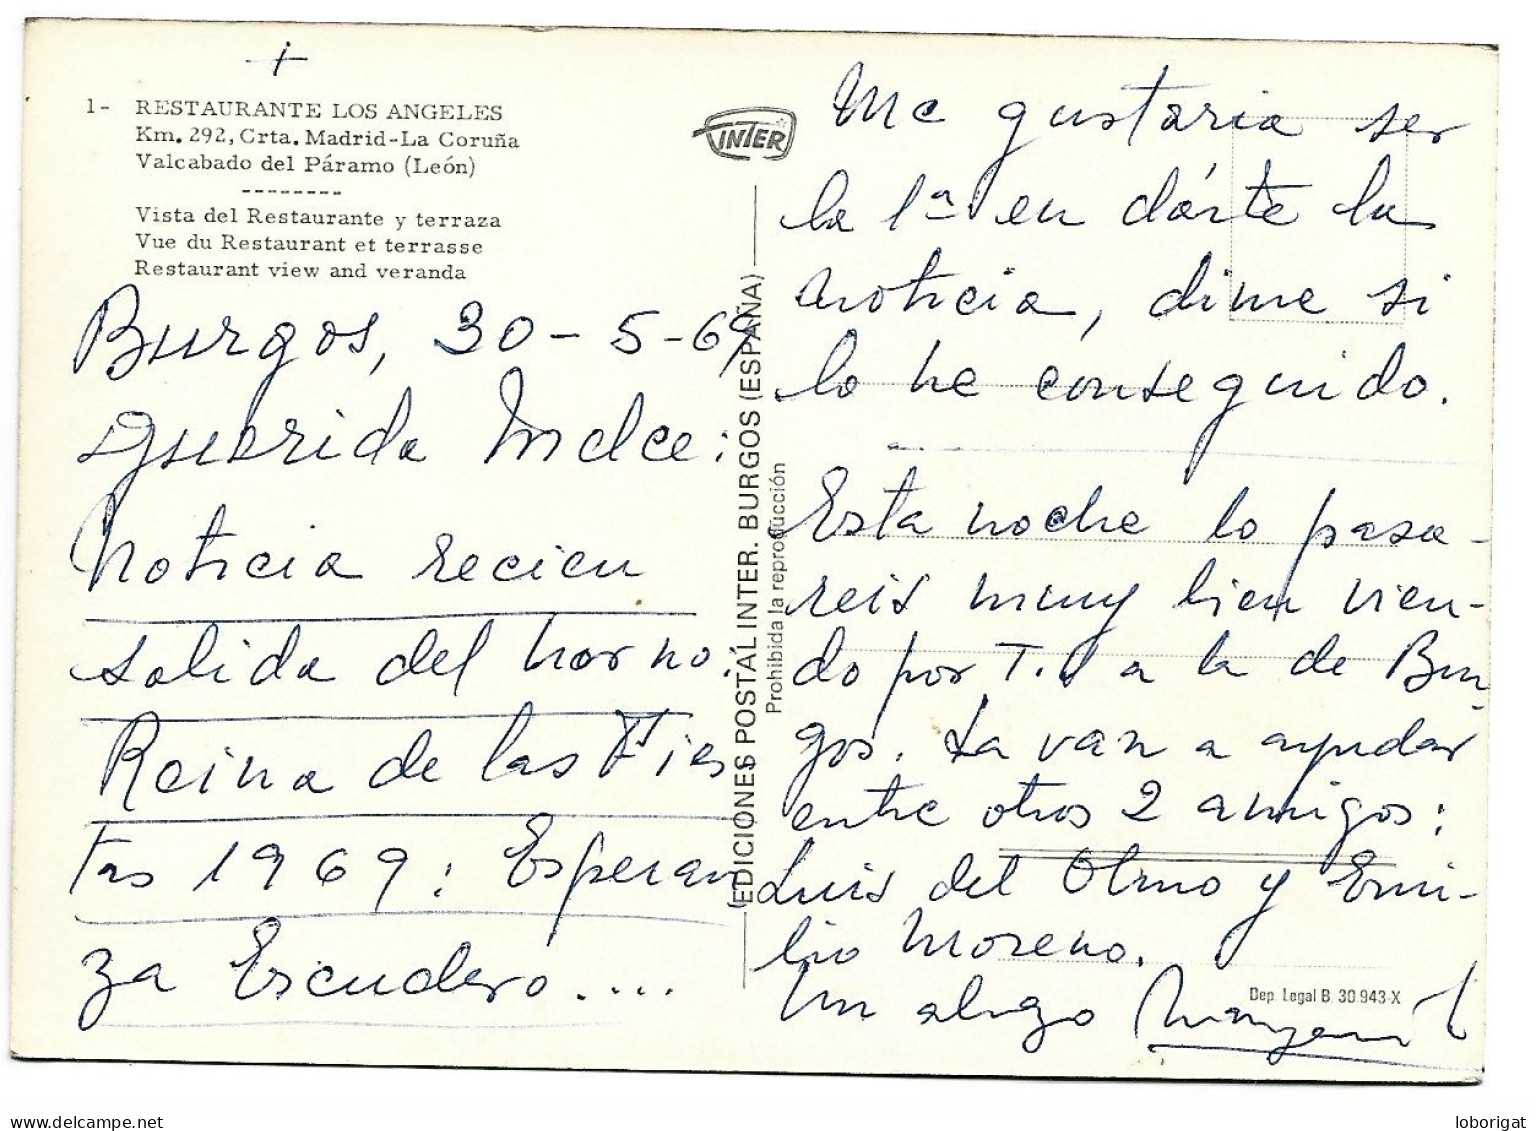 +
1- RESTAURANTE LOS ANGELES
Km. 292, Crta. Madrid-La Coruña
Valcabado del Páramo (León)
--------
Vista del Restaurante y terraza
Vue du Restaurant et terrasse
Restaurant view and veranda
Burgos, 30-5-69
Querida Mdce:
Noticia recien
salida del horno.
Reina de las Fies
tas 1969: Esperan
za Escudero....
INTER
(EDICIONES POSTAL INTER. BURGOS (ESPAÑA)
Prohibida la reproducción
Me gustaria ser
la 1ª en dárte la
noticia, dime si
lo he conseguido.
Esta noche lo pasa-
reis muy bien vien-
do por T.V a la de Bur-
gos. La van a ayudar
entre otros 2 amigos:
Luis del Olmo y Emi-
lio Moreno.
Un abrazo
Dep. Legal B. 30.943-X
delcampe.net
loborigat